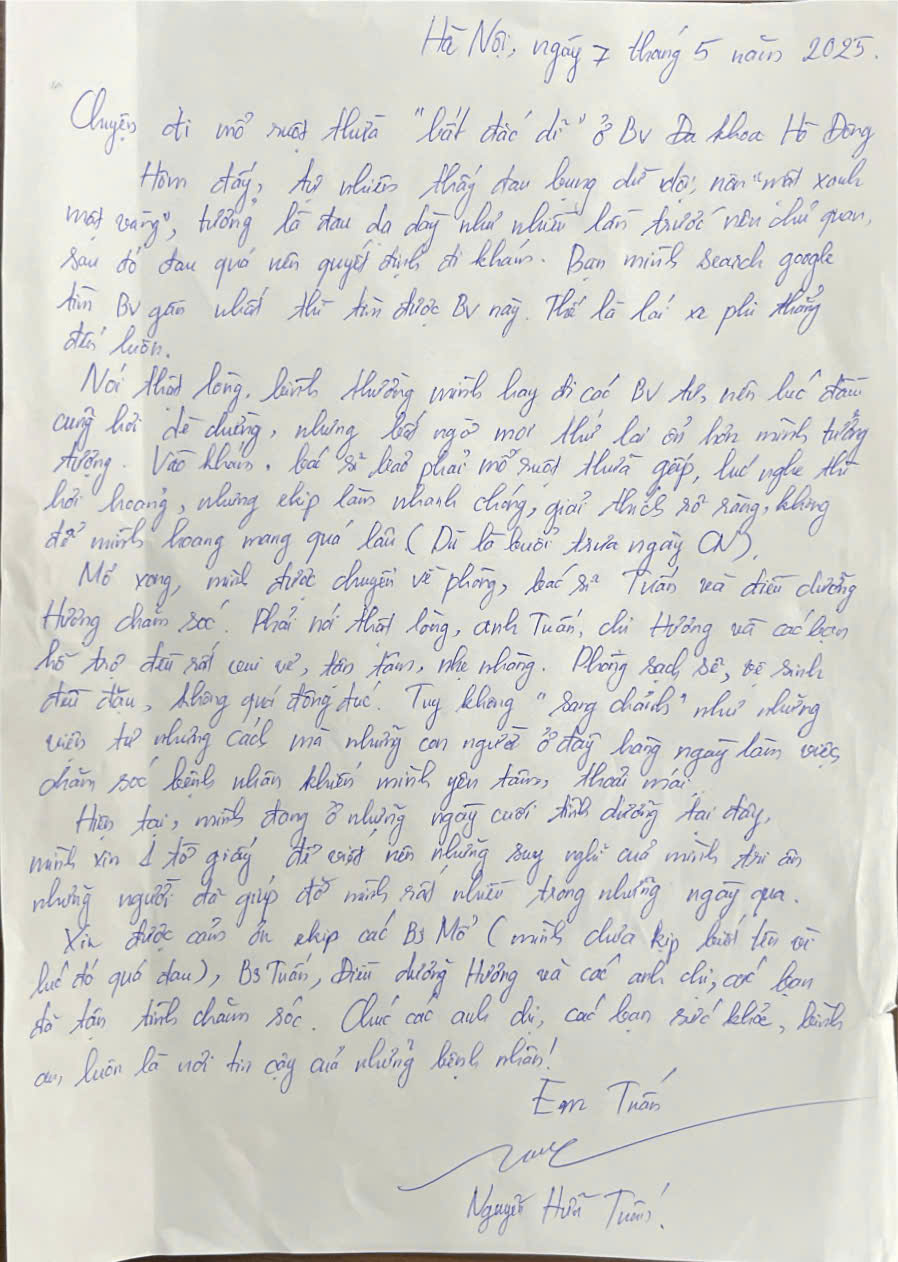 Hà Nội, ngày 7 tháng 5 năm 2025.
Chuyện đi mổ ruột thừa "bất đắc dĩ" ở BV Đa khoa Hà Đông
Hôm đấy, tự nhiên thấy đau bụng dữ dội, nôn "mật xanh
mật vàng", tưởng là đau dạ dày như nhiều lần trước nên chủ quan,
sau đó đau quá nên quyết định đi khám. Bạn mình search google
tìm BV gần nhất thì tìm được BV này. Thế là lái xe phi thẳng
đến luôn.
Nói thật lòng, bình thường mình hay đi các BV tư, nên lúc đầu
cũng hơi dè chừng, nhưng bất ngờ mọi thứ lại ổn hơn mình tưởng
tượng. Vào khám, bác sĩ bảo phải mổ ruột thừa gấp, lúc nghe thì
hơi hoảng, nhưng ekip làm nhanh chóng, giải thích rõ ràng, không
để mình hoang mang quá lâu (Dù là buổi trưa ngày CN).
Mổ xong, mình được chuyển về phòng, bác sĩ Tuấn và điều dưỡng
Hương chăm sóc. Phải nói thật lòng, anh Tuấn, chị Hương và các bạn
hỗ trợ đều rất vui vẻ, tận tâm, nhẹ nhàng. Phòng sạch sẽ, vệ sinh
đều đặn, không quá đông đúc. Tuy không "sang chảnh" như những
viện tư nhưng cách mà những con người ở đây hàng ngày làm việc,
chăm sóc bệnh nhân khiến mình yên tâm, thoải mái.
Hiện tại, mình đang ở những ngày cuối tĩnh dưỡng tại đây,
mình xin 1 tờ giấy để viết nên những suy nghĩ của mình tri ân
những người đã giúp đỡ mình rất nhiều trong những ngày qua.
Xin được cảm ơn ekip các Bs Mổ (mình chưa kịp biết tên vì
lúc đó quá đau), Bs Tuấn, Điều dưỡng Hương và các anh chị, các bạn
đã tận tình chăm sóc. Chúc các anh chị, các bạn sức khỏe, bình
an, luôn là nơi tin cậy của những bệnh nhân!
Em Tuấn
Nguyễn Hữu Tuấn!